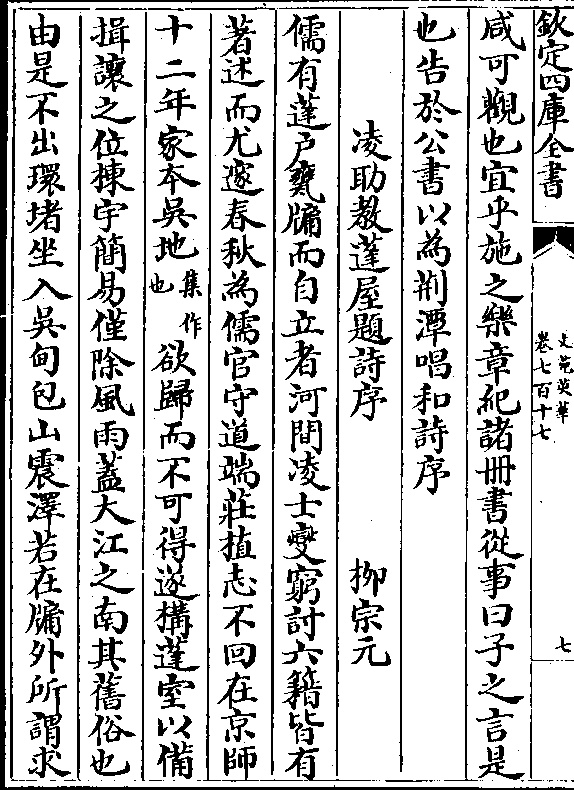 欽定四庫全書
文苑英華
卷七百十七
七
咸可觀也宜乎施之樂章紀諸冊書從事曰子之言是
也告於公書以為荆潭唱和詩序
凌助教蓬屋題詩序 栁宗元
儒有蓬戸甕牖而自立者河間凌士燮窮討六籍皆有
著述而尤邃春秋為儒官守道端莊植志不回在京師
十二年家夲吳地集作也欲歸而不可得遂構蓬室以備
揖讓之位棟宇簡易僅除風雨蓋大江之南其舊俗也
由是不出環堵坐入吳甸包山震澤若在牖外所謂求